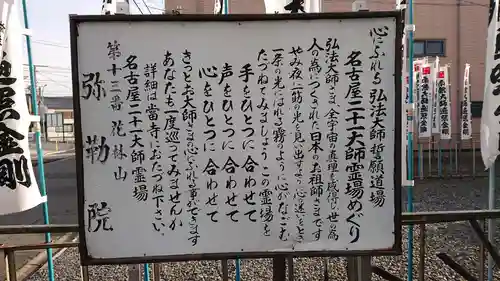 心にふれる 弘法大師誓願道場
名古屋二十一大師霊場めぐり
弘法大師さま、全宇宙の真理を感得し世の為
人の為につくされた日本のお祖師さまです
やみ夜に一筋の光を見い出したように 心の道をとき
一条の光にはれる霧のように 心がなごむ
たづねてみましょう この霊場を
手をひとつに 合わせて
声をひとつに 合わせて
心をひとつに 合わせて
きっとお大師さまに ふれる事ができます
あなたも一度巡ってみませんか
詳細は当寺におたづね下さい。
名古屋二十一大師霊場
第十三番 花林山
弥勒院
金剛